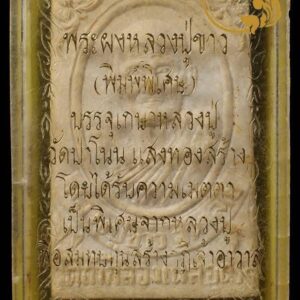 พระผงหลวงปู่ขาว
(พิมพ์พิเศษ)
บรรจุเกษาหลวงปู่
วัดป่าโนนแสงทองสร้าง
โดยได้รับความเมตตา
เป็นพิเศษจากหลวงปู่